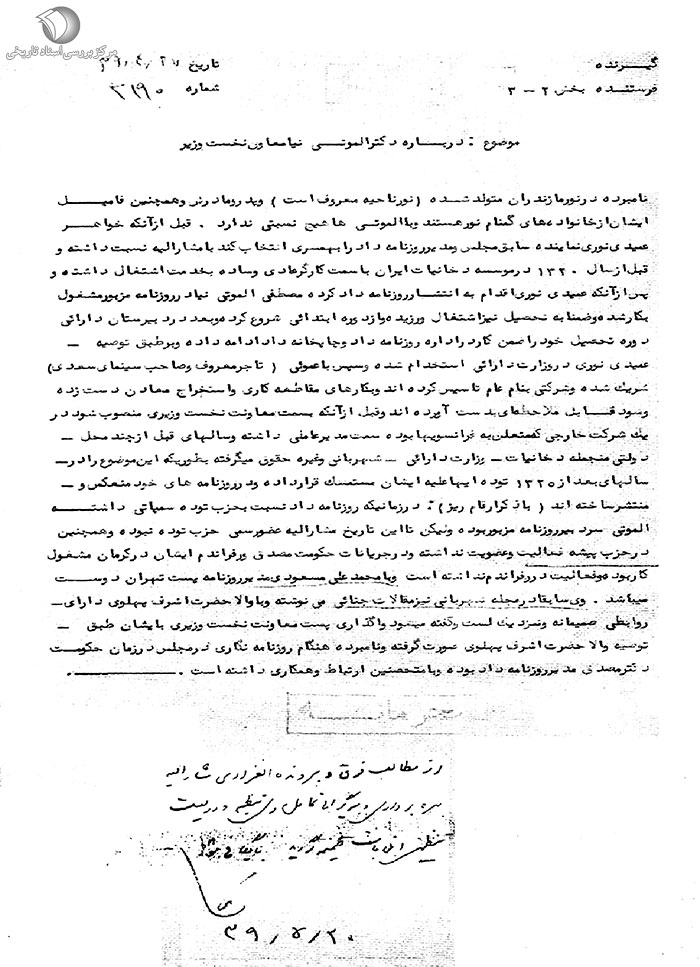 مرکز بررسی اسناد تاریخی
گیرنده
تاریخ
فرستنده بخش ۲ – ۳
شماره
موضوع : درباره دکتر الموتی نیا معاون نخست وزیر
نامبرده در نور مازندران متولد شده (نور ناحیه معروف است ) و پدر و مادرش و همچنین فامیل
ایشان از خانواده های گمنام نور هستند و با الموتی ها هیچ نسبتی ندارد . قبل از آنکه خواهر
عمیدی نوری نماینده سابق مجلس و مدیر روزنامه داد را بهمسری انتخاب کند با مشارالیه نسبت داشته و
قبل از سال ۱۳۲۰ در موسسه دخانیات ایران با سمت کارگر عادی و ساده بخدمت اشتغال داشته و
پس از آنکه عمیدی نوری اقدام به انتشار روزنامه داد کرده مصطفی الموتی نیا در روزنامه مزبور مشغول
بکار شده و ضمنا به تحصیل نیز اشتغال ورزیده و از دوره ابتدائی شروع کرده و بعد در دبیرستان دارائی
دوره تحصیل خود را ضمن کار در اداره روزنامه داد و چاپخانه داد ادامه داده و بر طبق توصیه –
عمیدی نوری در وزارت دارائی استخدام شده و سپس با عموئی ( تاجر معروف و صاحب سینمای سعدی)
شریک شده و شرکتی بنام عام تاسیس کرده اند و بکارهای مقاطعه کاری و استخراج معادن دست زده
و سود قابل ملاحظه ای بدست آورده اند و قبل از آنکه بسمت معاونت نخست وزیری منصوب شود در
یک شرکت خارجی که متعلق به فرانسویها بوده سمت مدیر عاملی داشته و سالهای قبل از چند محل –
دولتی منجمله دخانیات – وزارت دارائی – شهربانی و غیره حقوق میگرفته بطوریکه این موضوع را در –
سالهای بعد از ۱۳۲۵ توده ایها علیه ایشان مستمسک قرار داده و در روزنامه های خود منعکس و –
منتشر ساخته اند ( با ذکر ارقام ریز ) . در زمانیکه روزنامه داد نسبت بحزب توده سمپاتی داشته
الموتی سردبیر روزنامه مزبور بوده ولیکن تا این تاریخ مشارالیه عضو رسمی حزب توده نبوده و همچنین
در حزب پیشه فعالیت و عضویت نداشته و در جریانات حکومت مصدق و رفراندم ایشان در کرمان مشغول
کار بوده و فعالیت در رفراندم نداشته است و با محمد علی مسعودی مدیر روزنامه پست تهران دوست
میباشد . وی سابقا در مجله شهربانی نیز مقالات جنائی می نوشته و با والاحضرت اشرف پهلوی دارای –
روابطی صمیمانه و نزدیک است و گفته میشود واگذاری پست معاونت نخست وزیری بایشان طبق –
توصیه والاحضرت اشرف پهلوی صورت گرفته و نامبرده هنگام روزنامه نگاری در مجلس در زمان حکومت
دکتر مصدق مدیر روزنامه داد بوده و با متحصنین ارتباط و همکاری داشته است .
محرمانه
از مطالب فوق و پرونده انفرادی مشارالیه
بهره برداری و بیوگرافی کامل وی تنظیم و در لیست
۳۹/۵/۲۰